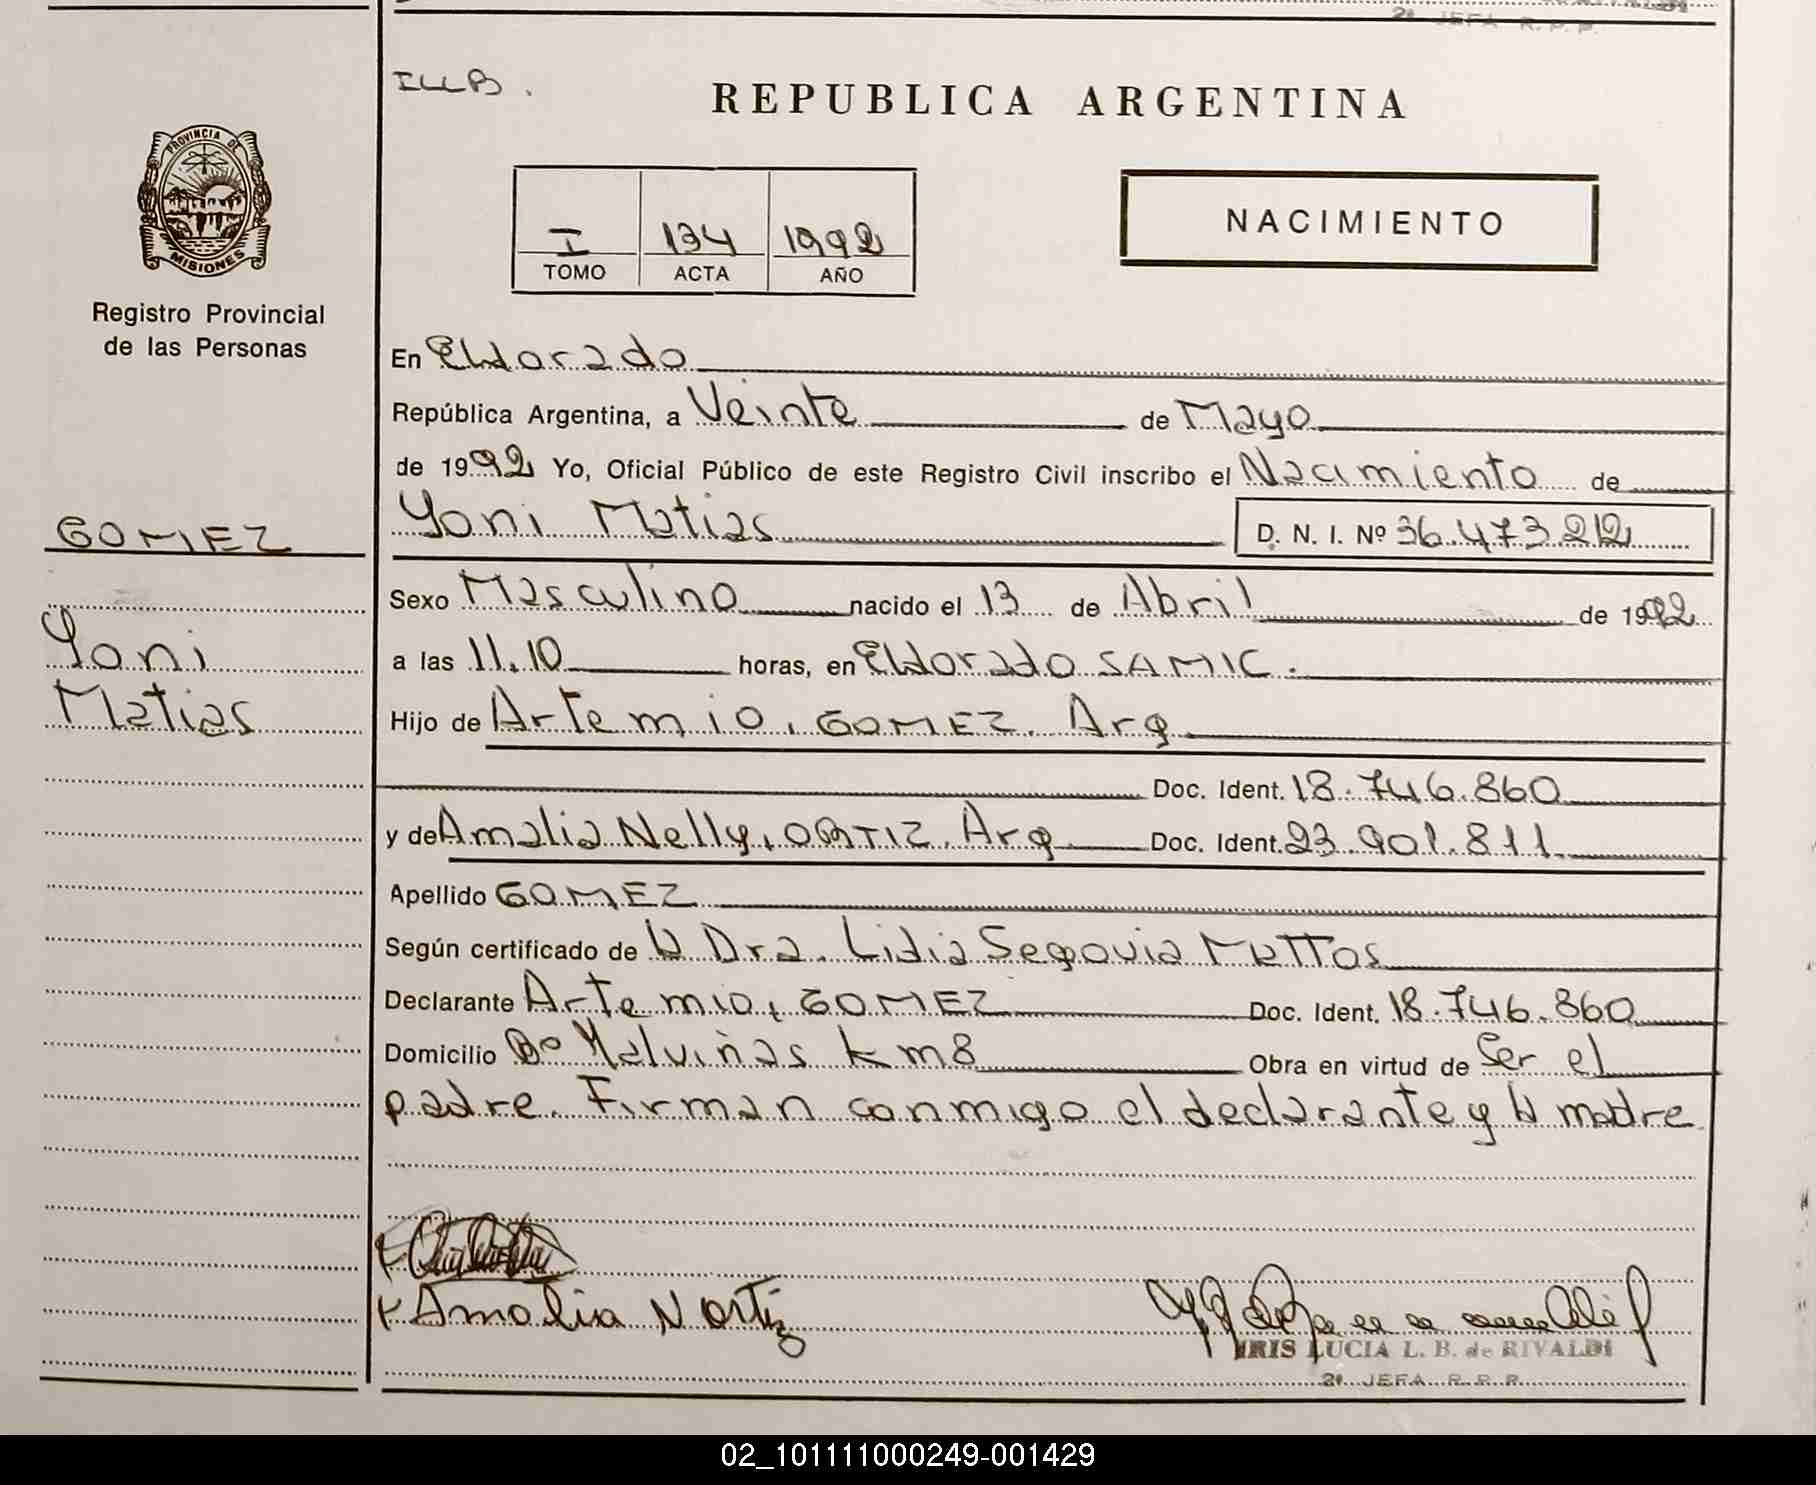 2ª JEFA R.P.P.
ILLB.
REPUBLICA ARGENTINA
PROVINCIA DE
MISIONES
Registro Provincial
de las Personas
I 134 1992
TOMO ACTA AÑO
NACIMIENTO
En Eldorado
República Argentina, a Veinte de Mayo
de 1992 Yo, Oficial Público de este Registro Civil inscribo el Nacimiento de
Yoni Matias D. N. I. Nº 36.473.212
GOMEZ
Yoni
Matias
Sexo Masculino nacido el 13 de Abril de 1992
a las 11.10 horas, en Eldorado SAMIC.
Hijo de Artemio, GOMEZ. Arg
Doc. Ident. 18.746.860
y de Amalia Nelly, ORTIZ. Arg Doc. Ident. 23.901.811
Apellido GOMEZ
Según certificado de la Dra. Lidia Segovia Mattos
Declarante Artemio, GOMEZ Doc. Ident. 18.746.860
Domicilio Bº Malvinas km8 Obra en virtud de Ser el
padre. Firman conmigo el declarante y la madre
Amalia N Ortiz
IRIS LUCIA L. B. de RIVALDI
2ª JEFA R.P.P.
02_101111000249-001429